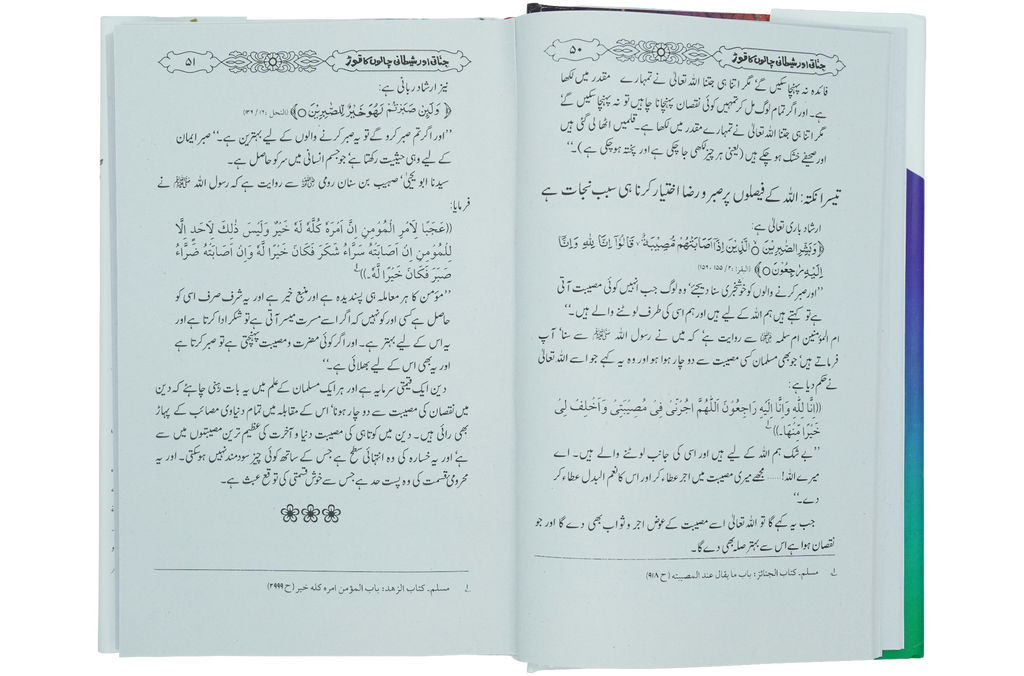 جناتی اور شیطانی چالوں کا توڑ
۵۰
فائدہ نہ پہنچا سکیں گے‘ مگر اتنا ہی جتنا اللہ تعالیٰ نے تمہارے مقدر میں لکھا
ہے۔ اور اگر تمام لوگ مل کر تمہیں کوئی نقصان پہنچانا چاہیں تو نہ پہنچا سکیں گے‘
مگر اتنا ہی جتنا اللہ تعالیٰ نے تمہارے مقدر میں لکھا ہے۔ قلمیں اٹھا لی گئی ہیں
اور صحیفے خشک ہو چکے ہیں (یعنی ہر چیز لکھی جا چکی ہے اور پختہ ہو چکی ہے)۔‘‘
تیسرا نکتہ: اللہ کے فیصلوں پر صبر و رضا اختیار کرنا ہی سبب نجات ہے
ارشاد باری تعالیٰ ہے:
﴿وَبَشِّرِ الصّٰبِرِيْنَ ○ الَّذِيْنَ اِذَا اَصَابَتْهُمْ مُّصِيْبَةٌ ۙ قَالُوْۤا اِنَّا لِلّٰهِ وَاِنَّاۤ
اِلَيْهِ رٰجِعُوْنَ○﴾ (البقرا : ۲/ ۱۵۵، ۱۵۶)
’’اور صبر کرنے والوں کو خوشخبری سنا دیجئے‘ وہ لوگ جب انہیں کوئی مصیبت آتی
ہے تو کہتے ہیں ہم اللہ کے لیے ہیں اور ہم اسی کی طرف لوٹنے والے ہیں۔‘‘
ام المؤمنین ام سلمہ ؓ سے روایت ہے‘ کہ میں نے رسول اللہ ﷺ سے سنا‘ آپ
فرماتے ہیں‘ جو بھی مسلمان کسی مصیبت سے دو چار ہوا ہو اور وہ یہ کہے جو اسے اللہ تعالیٰ
نے حکم دیا ہے:
((اِنَّا لِلّٰهِ وَاِنَّا اِلَيْهِ رَاجِعُوْنَ اَللّٰهُمَّ اجُرْنِیْ فِیْ مُصِيْبَتِیْ وَاَخْلِفْ لِیْ
خَيْرًا مِّنْهَا۔))؎۱
’’بے شک ہم اللہ کے لیے ہیں اور اسی کی جانب لوٹنے والے ہیں۔ اے
میرے اللہ!...... مجھے میری مصیبت میں اجر عطاء کر اور اس کا نعم البدل عطاء کر
دے۔‘‘
جب یہ کہے گا تو اللہ تعالیٰ اسے مصیبت کے عوض اجر و ثواب بھی دے گا اور جو
نقصان ہوا ہے اس سے بہتر صلہ بھی دے گا۔
؎۱ مسلم۔ کتاب الجنائز: باب ما یقال عند المصیبته (ح ۹۱۸)
جناتی اور شیطانی چالوں کا توڑ
۵۱
نیز ارشاد ربانی ہے:
﴿ وَلَئِنْ صَبَرْتُمْ لَهُوَ خَيْرٌ لِّلصّٰبِرِيْنَ ○﴾ (النحل : ۱۶/ ۱۲۶)
’’اور اگر تم صبر کرو گے تو یہ صبر کرنے والوں کے لیے بہترین ہے۔‘‘ صبر ایمان
کے لیے وہی حیثیت رکھتا ہے‘ جو جسم انسانی میں سر کو حاصل ہے۔
سیدنا ابو یحییٰ‘ صہیب بن سنان رومی ؓ سے روایت ہے کہ رسول اللہ ﷺ نے
فرمایا:
((عَجَبًا لِاَمْرِ الْمُؤْمِنِ اِنَّ اَمْرَهٗ كُلَّهٗ لَهٗ خَيْرٌ وَلَيْسَ ذٰلِكَ لِاَحَدٍ اِلَّا
لِلْمُؤْمِنِ اِنْ اَصَابَتْهُ سَرَّاءُ شَكَرَ فَكَانَ خَيْرًا لَّهٗ وَاِنْ اَصَابَتْهُ ضَرَّاءُ
صَبَرَ فَكَانَ خَيْرًا لَّهٗ۔))؎۱
’’مؤمن کا ہر معاملہ ہی پسندیدہ ہے اور منبع خیر ہے اور یہ شرف صرف اسی کو
حاصل ہے کسی اور کو نہیں کہ اگر اسے مسرت میسر آتی ہے تو شکر ادا کرتا ہے اور
یہ اس کے لیے بہتر ہے۔ اور اگر کوئی مضرت و مصیبت پہنچتی ہے تو صبر کرتا ہے
اور یہ بھی اس کے لیے بھلائی ہے۔‘‘
دین ایک قیمتی سرمایہ ہے اور ہر ایک مسلمان کے علم میں یہ بات رہنی چاہئے کہ دین
میں نقصان کی مصیبت سے دو چار ہونا‘ اس کے مقابلہ میں تمام دنیاوی مصائب کے پہاڑ
بھی رائی ہیں۔ دین میں کوتاہی کی مصیبت دنیا و آخرت کی عظیم ترین مصیبتوں میں سے
ہے‘ اور یہ خسارہ کی وہ انتہائی سطح ہے جس کے ساتھ کوئی چیز سود مند نہیں ہو سکتی۔ اور یہ
محرومی قسمت کی وہ پست حد ہے جس سے خوش قسمتی کی توقع عبث ہے۔
؎۱ مسلم۔ کتاب الزهد: باب المؤمن امره كله خير (ح ۲۹۹۹)